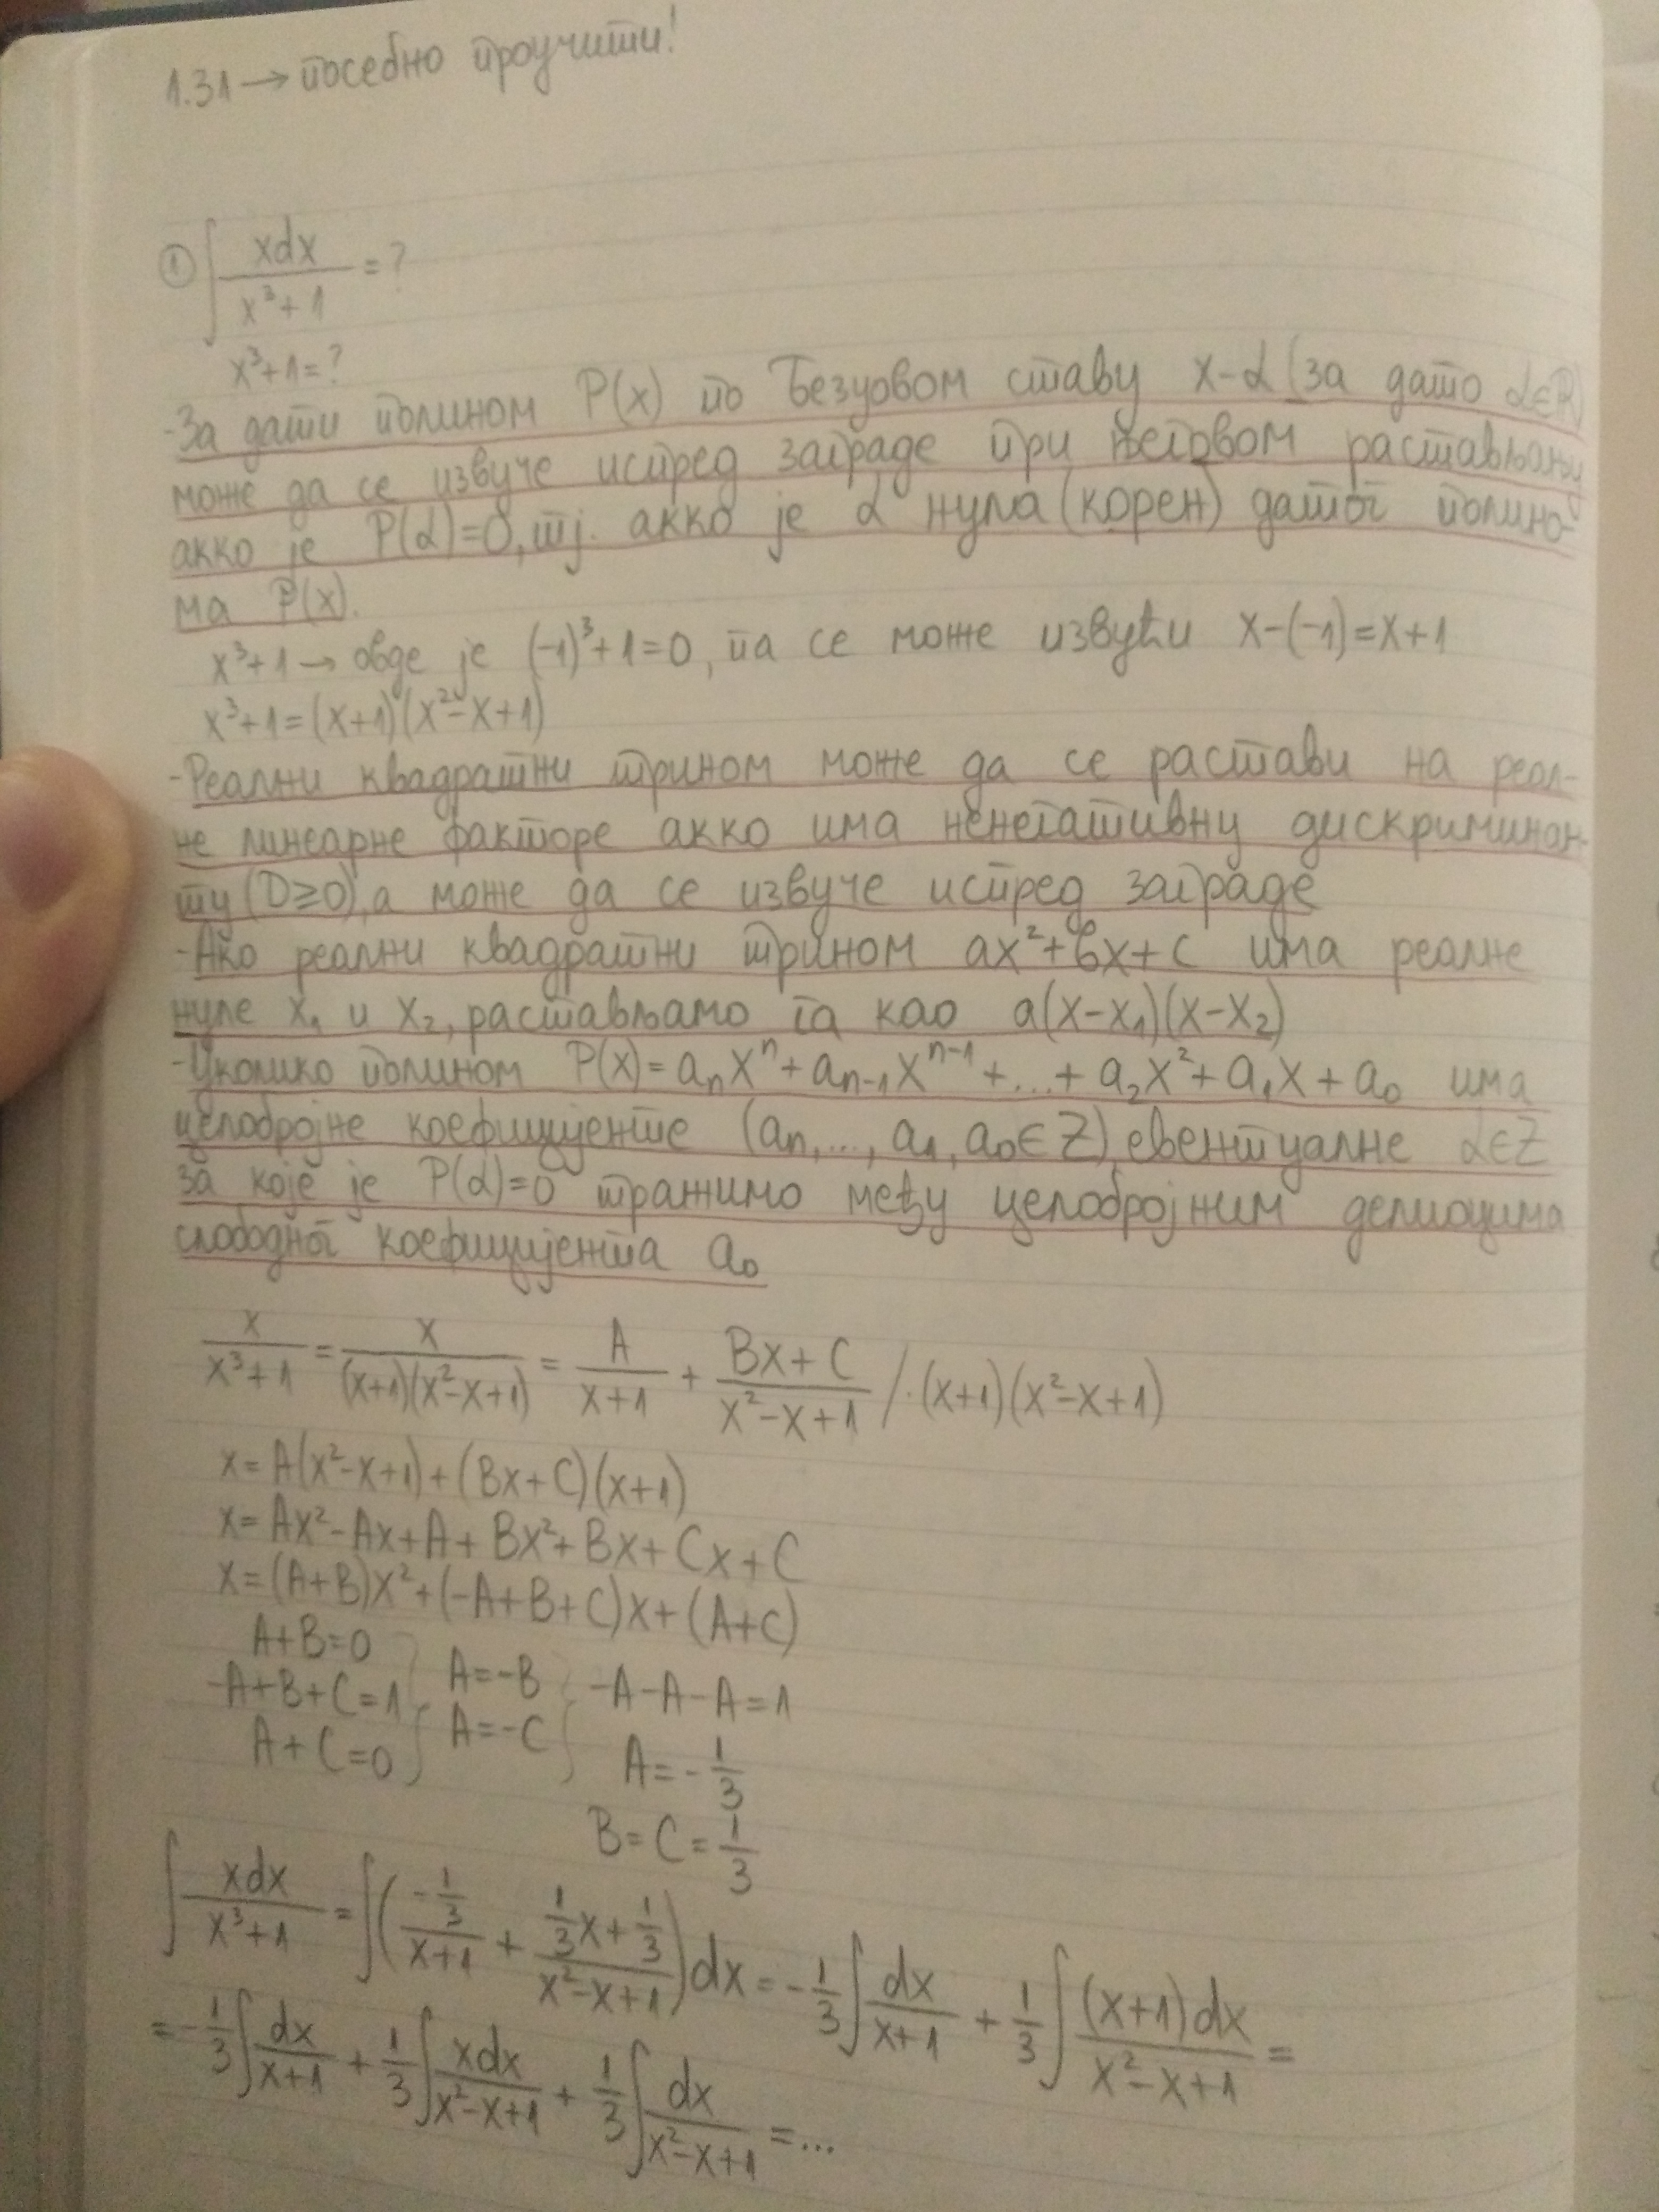 1.31 → посебно проучити!
① ∫ xdx/(x³+1) = ?
x³+1=?
-За дати полином P(x) по Безуовом ставу x-α (за дато α∈R)
може да се извуче испред заграде при његовом растављању
акко је P(α)=0, тј. акко је α нула (корен) датог полино-
ма P(x).
x³+1 → овде је (-1)³+1=0, па се може извући x-(-1)=x+1
x³+1=(x+1)(x²-x+1)
-Реални квадратни трином може да се растави на реал-
не линеарне факторе акко има ненегативну дискриминан-
ту (D≥0), а може да се извуче испред заграде
-Ако реални квадратни трином ax²+bx+c има реалне
нуле x₁ и x₂, растављамо га као a(x-x₁)(x-x₂)
-Уколико полином P(x)=aₙxⁿ+aₙ₋₁xⁿ⁻¹+...+a₂x²+a₁x+a₀ има
целобројне коефицијенте (aₙ,..., a₁, a₀∈Z) евентуалне α∈Z
за које је P(α)=0 тражимо међу целобројним делиоцима
слободног коефицијента a₀
x/(x³+1) = x/((x+1)(x²-x+1)) = A/(x+1) + (Bx+C)/(x²-x+1) /·(x+1)(x²-x+1)
x=A(x²-x+1)+(Bx+C)(x+1)
x=Ax²-Ax+A+Bx²+Bx+Cx+C
x=(A+B)x²+(-A+B+C)x+(A+C)
A+B=0
-A+B+C=1 } A=-B } -A-A-A=1
A+C=0 } A=-C } A=-1/3
B=C=1/3
∫ xdx/(x³+1) = ∫((-1/3)/(x+1) + (1/3x+1/3)/(x²-x+1))dx = -1/3 ∫ dx/(x+1) + 1/3 ∫ (x+1)dx/(x²-x+1) =
= -1/3 ∫ dx/(x+1) + 1/3 ∫ xdx/(x²-x+1) + 1/3 ∫ dx/(x²-x+1) = ...